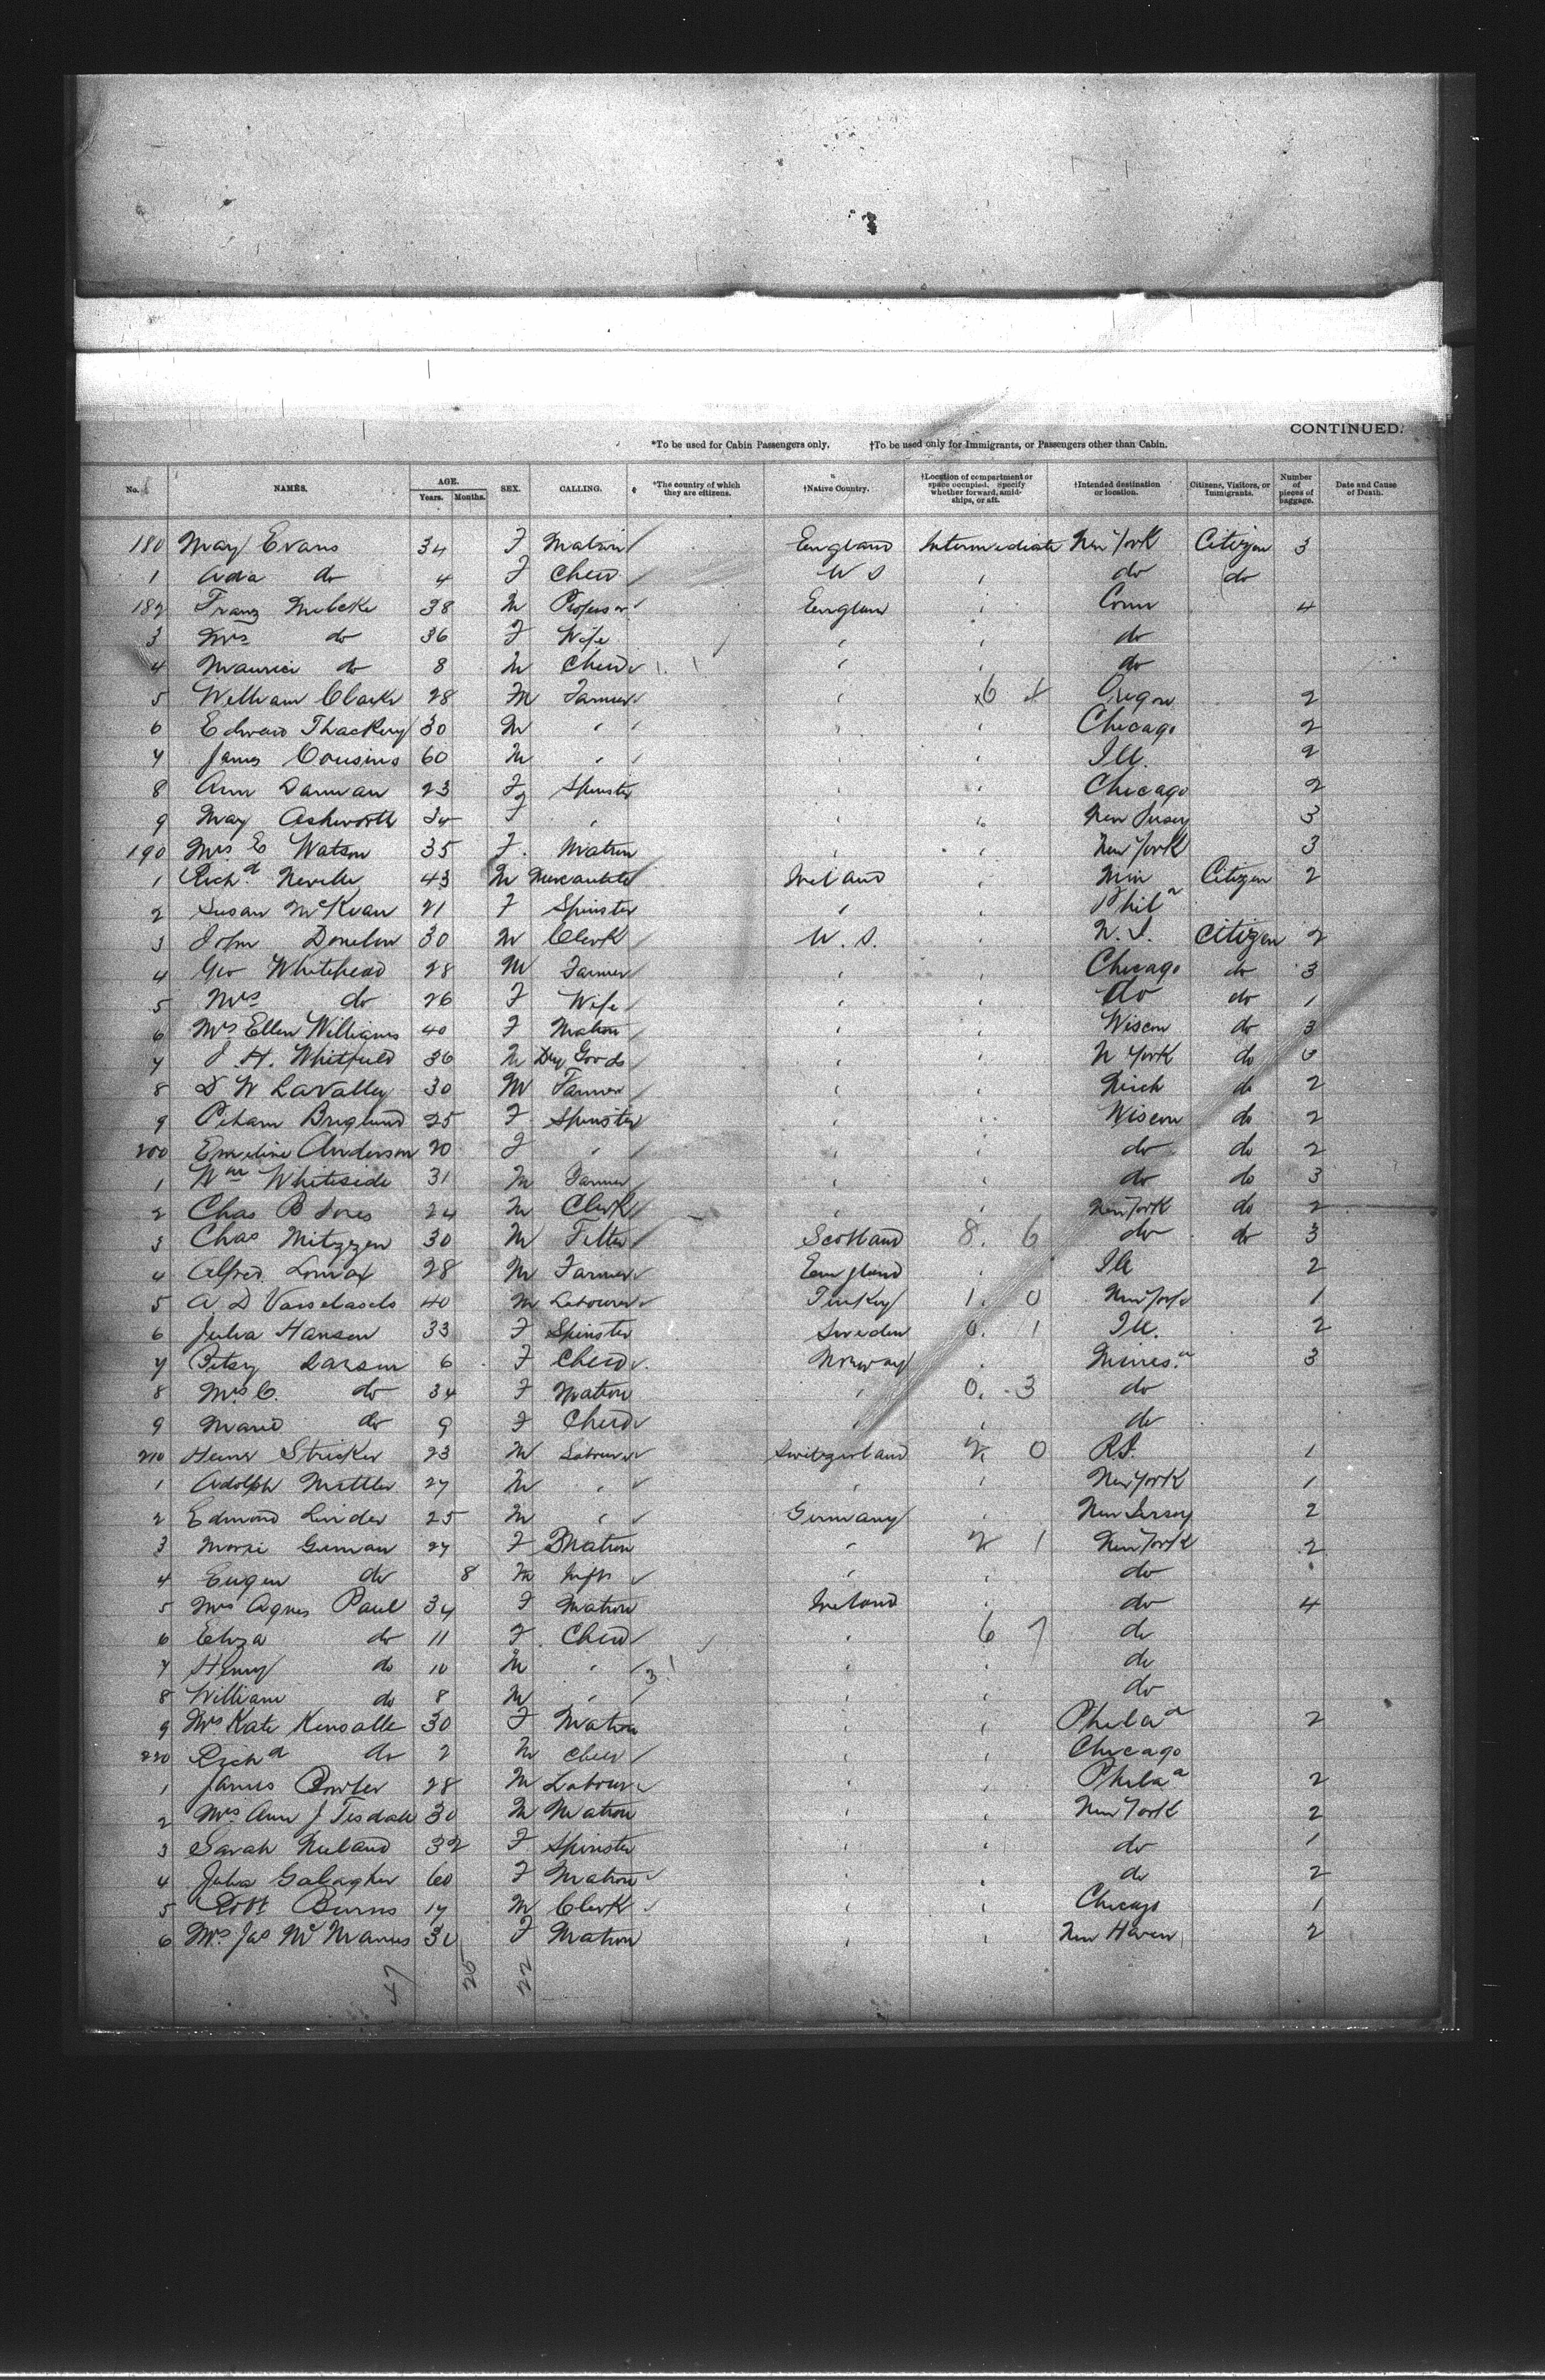 CONTINUED.
*To be used for Cabin Passengers only. †To be used only for Immigrants, or Passengers other than Cabin.
No. NAMES. AGE. Years. Months. SEX. CALLING. *The country of which they are citizens. †Native Country. †Location of compartment or space occupied. Specify whether forward, amidships, or aft. †Intended destination or location. Citizens, Visitors, or Immigrants. Number of pieces of baggage. Date and Cause of Death.
180 May Evans 34 F Matron England Intermediate New York Citizen 3
1 Ada do 4 F Child U S do do
182 Franz 38 M Professor England Conn 4
3 Mrs do 36 F Wife do
4 Maurice do 8 M Child do
5 William Clark 28 M Farmer 6 Oregon 2
6 Edward Thackery 30 M " Chicago 2
7 James Cousins 60 M " Ill. 2
8 Ann 23 F Spinster Chicago 2
9 May Ashworth F " New Jersey 3
190 Mrs E Watson 35 F. Matron New York 3
1 Richd Neville 43 M Mercantile Ireland Citizen 2
2 Susan McKean 21 F Spinster Phila
3 John Donelon 30 M Clerk U. S. Citizen 2
4 Geo Whitehead 28 M Farmer Chicago do 3
5 Mrs do 26 F Wife do do 1
6 Mrs Ellen Williams 40 F Matron Wiscon do 3
7 J H. Whitfield 36 M Dry Goods N York do 3
8 D W LaValley 30 M Farmer do 2
9 25 F Spinster Wiscon do 2
200 Emeline Anderson 20 F " do do 2
1 Wm Whiteside 31 M Farmer do do 3
2 Chas B 24 M Clerk New York do 2
3 Chas Mitzzen 30 M Fitter Scotland 8. 6 do do 3
4 Alfred Lomax 28 M Farmer England Ill 2
5 A D 40 M Labourer Turkey 1. 0 New York 1
6 Julia Hansen 33 F Spinster Sweden 0. 1 Ill. 2
7 Larson 6 F Child Norway 3
8 Mrs C. do 34 F Matron " 0. 3 do
9 do 9 F Child " do
210 Stricker 23 M Labourer Switzerland 2 0 R.I. 1
1 Adolph Mettler 27 M " New York 1
2 Edmond Linder 25 M " Germany New Jersey 2
3 27 F Matron " 2 1 New York 2
4 Eugen do 8 M Infn " do
5 Mrs Agnes Paul 34 F Matron Ireland do 4
6 Eliza do 11 F. Child 6 7 do
7 Henry do 10 M " 3 do
8 William do 8 M " do
9 Mrs Kate Kinsalle 30 F Matron Phila a 2
220 Richd do 2 M Child Chicago
1 James 28 M Labourer Phila a 2
2 Mrs Ann J Tisdall 30 M Matron New York 2
3 Sarah 32 F Spinster do 1
4 Julia Galagher 60 F Matron do 2
5 Robt Burns 17 M Clerk Chicago 1
6 Mrs Jas McManus F Matron New Haven 2
47 25 22